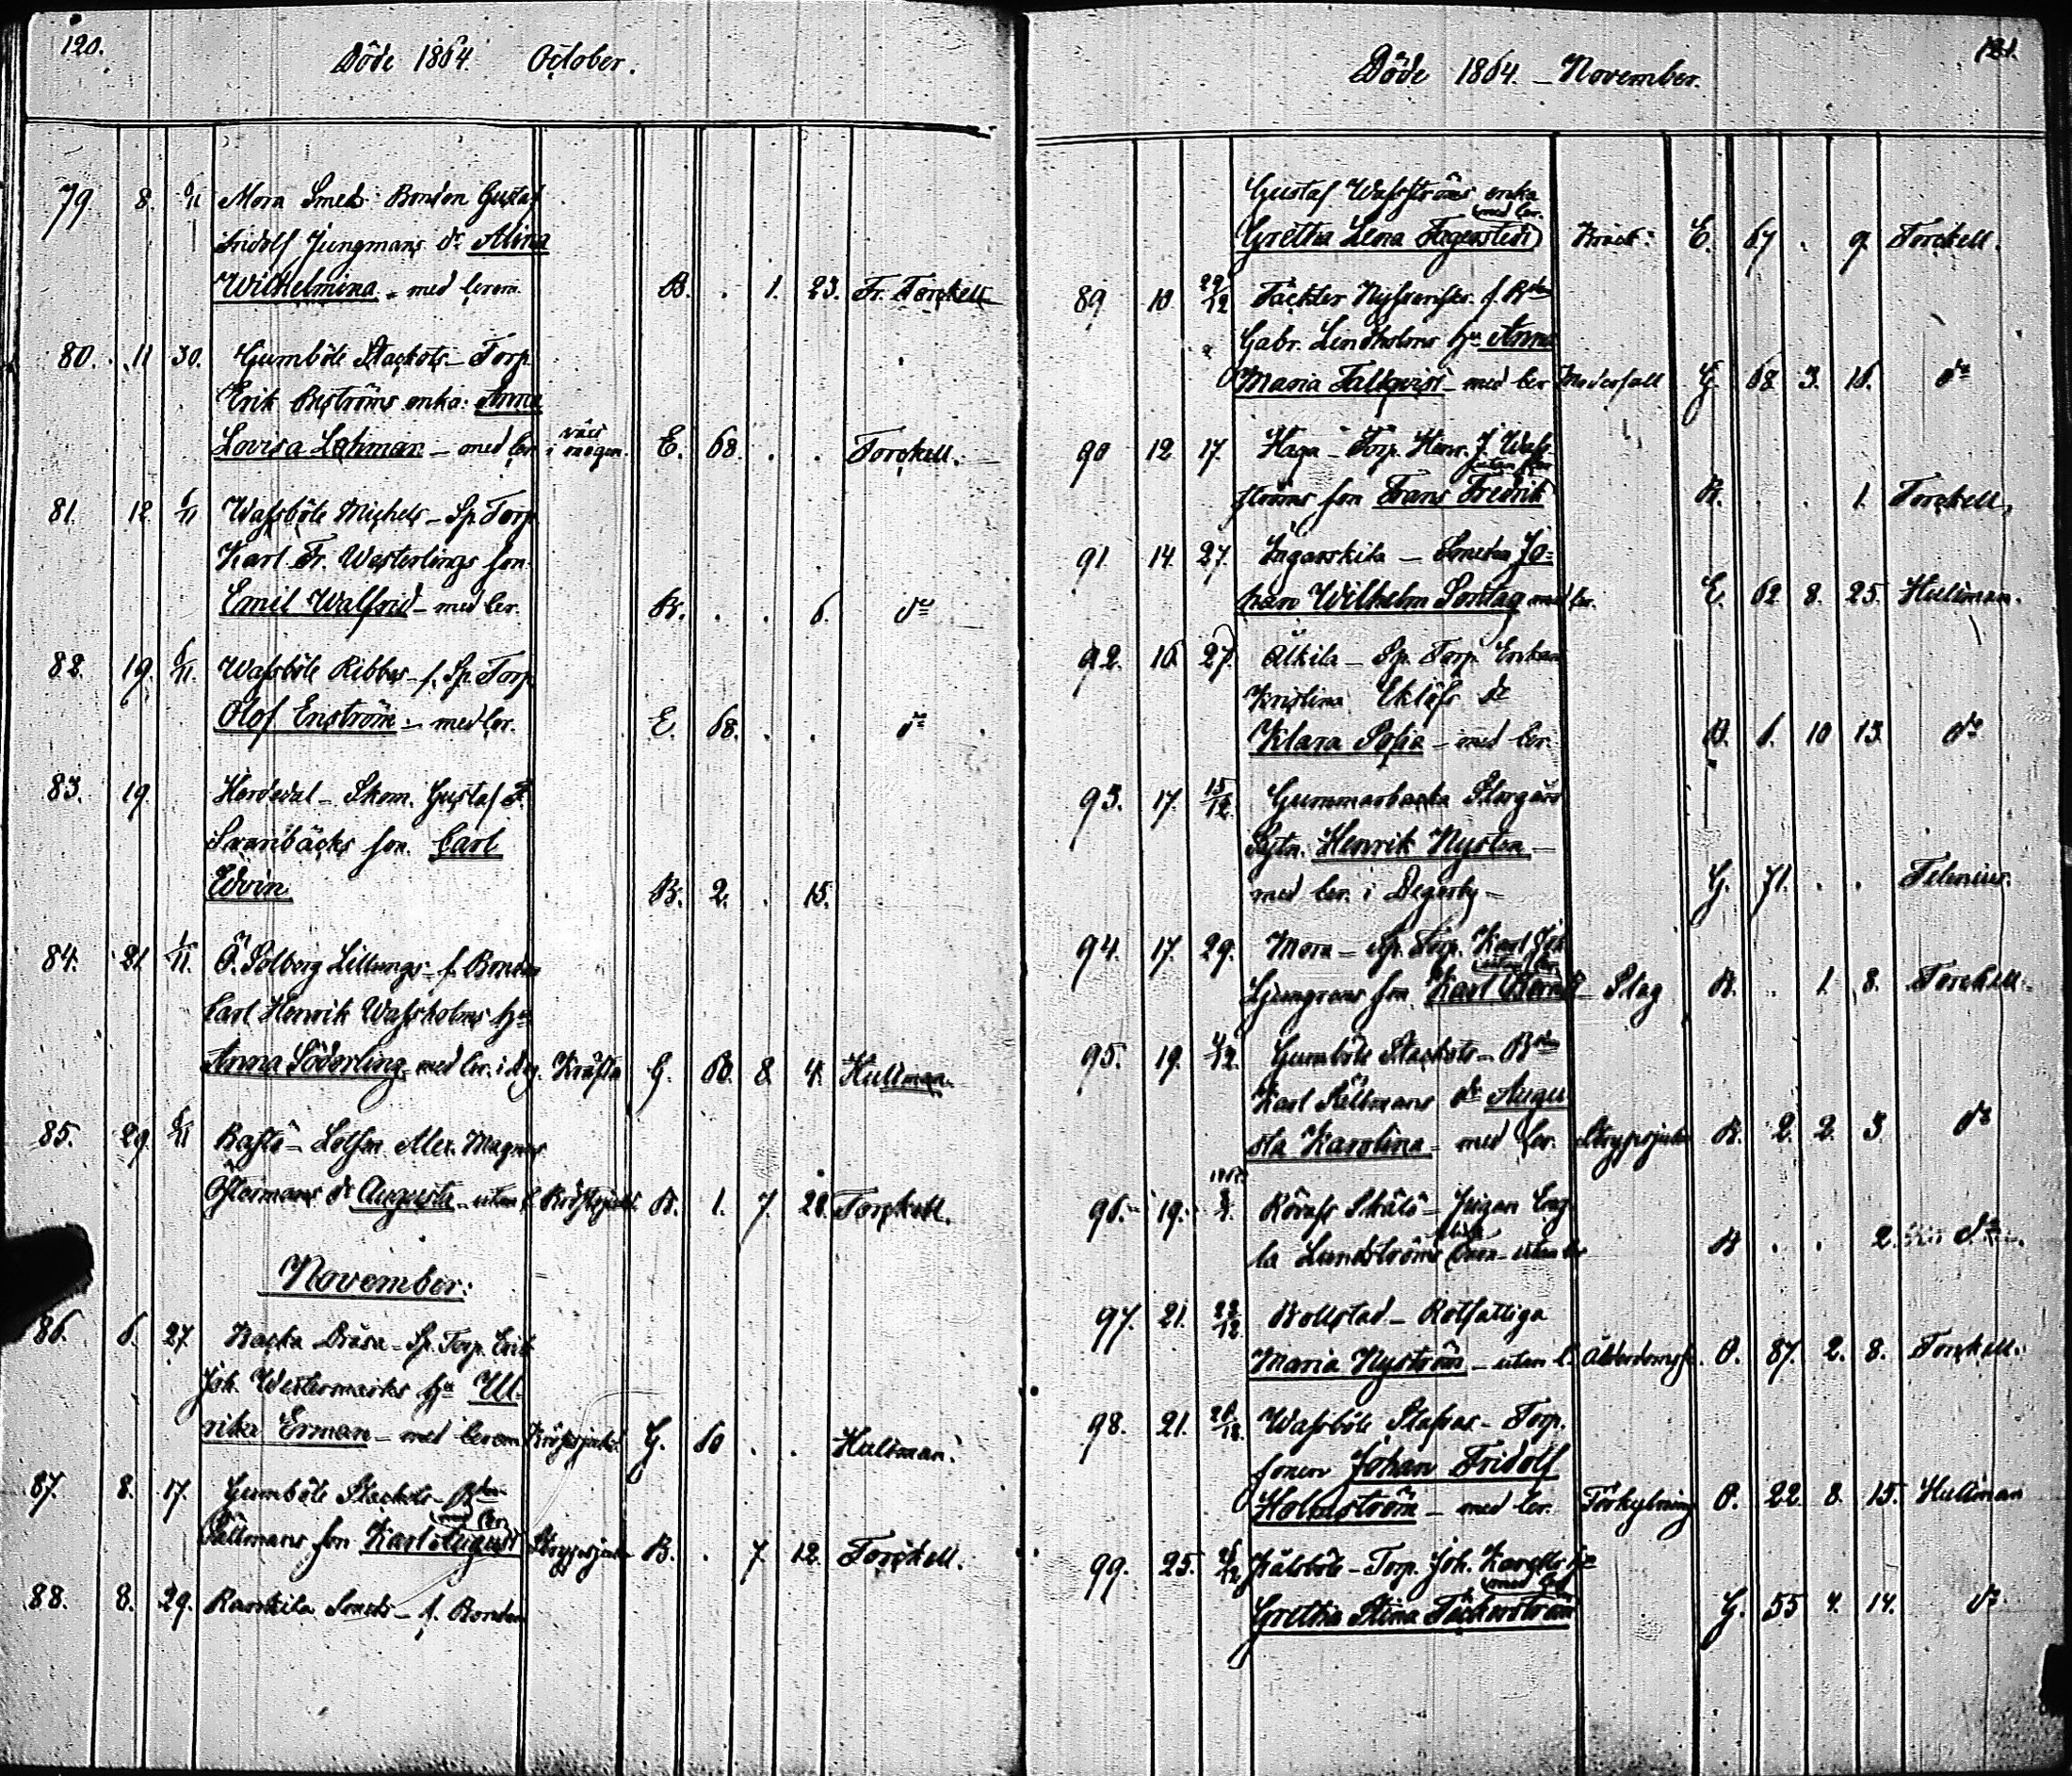 120.
Döde 1864. October.
79. 8. 6/11 Mora Smeds Bonden Gustaf
Fridolf Ljungmans dr Alina
Wilhelmina - med cerem. B. . 1. 23. Fr. Torckell
80. 11 30. Gumböle Stackots - Torp.
Erik Öströms enka: Anna
Lovisa Lohman - med cer. E. 68. . . Torckell.
81. 12 6/11 Wassböle Michels - Sp. Torp.
Karl Fr. Westerlings son
Emil Walfrid - med cer. B. . . 6. do
82. 19. 6/11 Wassböle Ribbas - f. Sp. Torp.
Olof Enström - med cer. E. 68. . . do
83. 19. Skom. Gustaf F.
Svanbäcks son Carl
Edvin. B. 2. . 15.
84. 21. 1/11 Ö. Solberg Lillunges - f. Bonden
Carl Henrik Wassholms hu
Anna Söderling. med cer. i Deg. Kräfta G. 60. 8. 4. Hultman.
85. 29. 6/11 Bastö - Lotsen Alex. Magnus
Östermans dr Augusta - utan c. Bröstsjukd. B. 1. 7. 20. Torckell.
November:
86. 6. 27 Backa Dräsa - Sp. Torp. Erik
Joh. Westermarks hu Ul-
rika Erman - med cerem. Bröstsjukd. G. 60 . . Hultman.
87. 8. 17. Gumböle Stackots - Bden
med cer.
Sällmans son Karl August Strypsjuka B. . 7. 12. Torckell.
88. 8. 29. Rankila Smeds - f. Bonden
121.
Döde 1864. - November.
Gustaf Wassströms enka
med cer.
Gretha Lena Fagerstedt Bråck: E. 67 . 9. Torckell.
89 10 29/12 Täckter Nyssvensks. f. Bden
Gabr. Lindholms hu Anna
Maria Tallqvist - med cer Moderfall G. 68. 3. 16. do
90 12 17. Haga - Torp. Henr. J. Wass-
utan cer
ströms son Frans Fredrik B. . . 1. Torckell.
91. 14. 27. Ingarskila - Smeden Jo-
han Wilhelm Sontag med cer. E. 62 8. 25. Hultman.
92. 16 27. Älkila - Sp. Torp. Enkan
Kristina Eklöfs dr
Klara Sofia - med cer. B. 6. 10 13. do
93. 17. 15/12 Gummarbacka Storgård
Sytn. Henrik Nysten -
med cer. i Degerby - G. 71. . .
94. 17. 29. Mora - Sp. Torp. Karl Joh
utan cer.
Ljungrens son Karl Bernd - Slag B. . 1. 8. Torckell.
95. 19. 4/12. Gumböle Stackots - Bden
Karl Sällmans dr Augu
sta Karolina - med cer. Strypsjuka B. 2. 2. 3 do
96. 19. Skälö - Pigan Eng-
la Lundströms barn - utan cer B . . 2. do
97. 21. 22/12 Bollstad - Rotfattiga
Maria Nyström - utan c. Ålderdomssv. O. 87. 2. 8. Torckell.
98. 21. 26/12. Wassböle Stafvas - Torp.
sonen Johan Fridolf
Holmström - med cer. Förkylning O. 22. 8. 15. Hultman
99. 25. Kälsböle - Torp. Joh. Karells hu
med cer
Gretha Stina Täckerström G. 55 4. 14. do